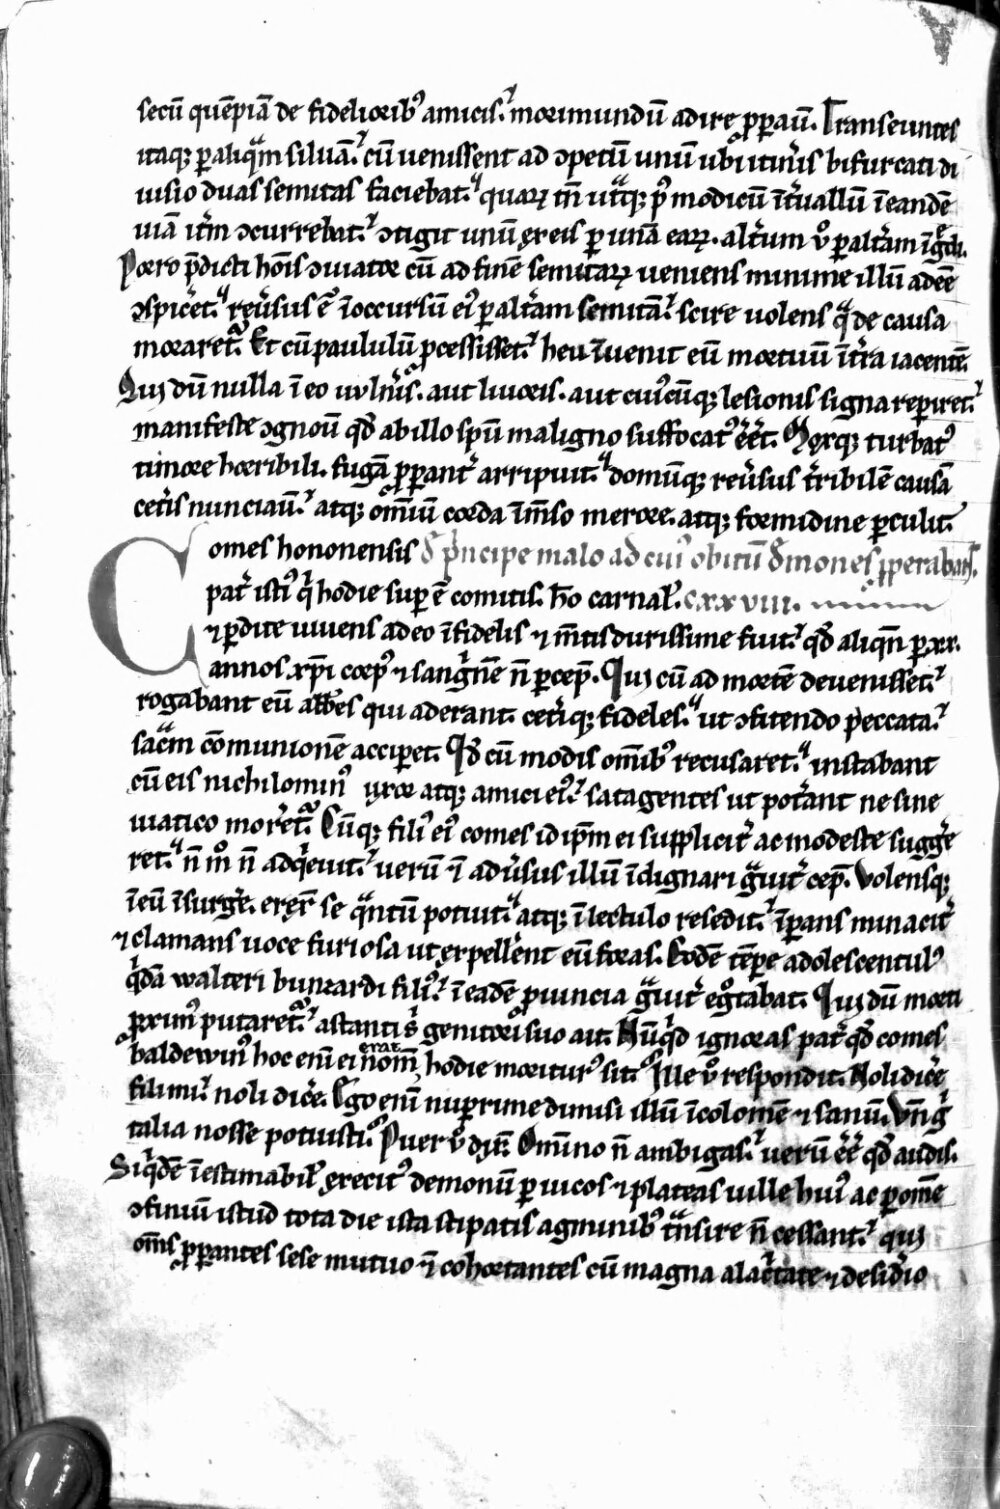 secū quēpiā de fidelioribꝰ amicis. morimundū adire ꝓpauit. Transeuntes
itaqꝫ ꝑ aliqᵃm siluā. cū uenissent ad ꝯpetū unū ubi itineris bifurcati di
uisio duas semitas faciebat. quarꝝ tn̄ utᵃqꝫ pꝰ modicū īteruallū ī eandē
uiā itm̄ ꝯcurrebat. ꝯtigit unū ex eis ꝑ unā earꝝ. alterum ū ꝑ alterām īgͣdi.
Porro p̄dicti hoīs ꝯuiator cū ad finē semitarꝝ ueniens minime illū adeē
ꝯspiceret. reūsus ē ī occursū eiꝰ ꝑ alterām semitā. scire uolens qͣ de causa
moraretͬ. Et cū paululū ꝓcessisset. heu īuenit eū mortuū ī terra iacentē.
Qui dū nulla ī eo uulneris. aut liuoris. aut cuiꝰcūqꝫ lesionis signa reperiret.
manifeste ꝯgnouit qd̄ ab illo spū maligno suffocatꝰ eēt. Moxqꝫ turbatꝰ
timore horribili. fugā ꝓꝑant̄ arripuit. domūqꝫ reūsus t̄ribilē causā
cet̄is nunciauit. atqꝫ om̄iū corda īm̄so merore. atqꝫ formidine ꝑculit.
Comes hononensis d̄ p̄ncipe malo ad cuiꝰ obitū d̄mones ꝓperabant.
pat̄ istiꝰ qͥ hodie suꝑ ē comitis. hō carnaƚ. cxxviii.
⁊ ꝑdite uiuens adeo īfidelis ⁊ m̄tis durissime fuit. qd̄ aliqn̄ ꝑ xx.
annos xp̄i corpꝰ ⁊ sangͥnē n̄ ꝑcep̄. Qui cū ad mortē deuenisset.
rogabant eū abb̄es qui aderant. cet̄iqꝫ fideles. ut ꝯfitendo peccata.
sacᵃm cōmunionē acciꝑet. Qd̄ cū modis om̄ibꝰ recusaret. instabant
cū eis nichilominꝰ uxor atqꝫ amici eiꝰ. satagentes ut pot̄ant ne sine
uiatico moreretͬ. Cūqꝫ filiꝰ eiꝰ comes id ip̄m ei suppliciṫ ac modeste sugge
ret. n̄ mͦ n̄ adqͥeuit. uerū ⁊ aduersus illū īdignari gͣuit̄ cep̄. Volensqꝫ
ī eū īsurgere. erex̄ se qᵃntū potuit. atqꝫ ī lectulo resedit. īꝑans minacit̄
⁊ clamans uoce furiosa ut expellerent eū foras. Eodē tēpe adolescentulꝰ
qͥdā walteri buntardi filiꝰ. ī eadē ꝓuincia gͣuit̄ egͦtabat. Qui dū morti
ꝓximꝰ putaretͬ. astanti s̄ genitori suo ait. Nūqͥd ignoras pat̄ qd̄ comes
baldewinꝰ hoc enī ei nom̄ erat hodie moriturꝰ sit. Ille ū respondit. Noli dice
fili mi. noli dice. Ego enī nuꝑrime dimisi illū īcolomē ⁊ sanū. Vn̄ gͦ
talia nosse potuisti. Puer ū dix̄. Om̄ino n̄ ambigas. uerū eē qd̄ audis.
Siqͥdē īestimabiƚ exercitꝰ demonū ꝑ uicos ⁊ plateas uille huiꝰ ac ꝑ om̄e
ꝯfiniū istud tota die ista stipatis agminibꝰ tᵃnsire n̄ cessant. qui
om̄s ꝓꝑantes sese mutuo ⁊ cohortantes cū magna alacͥtate ⁊ desid̄io